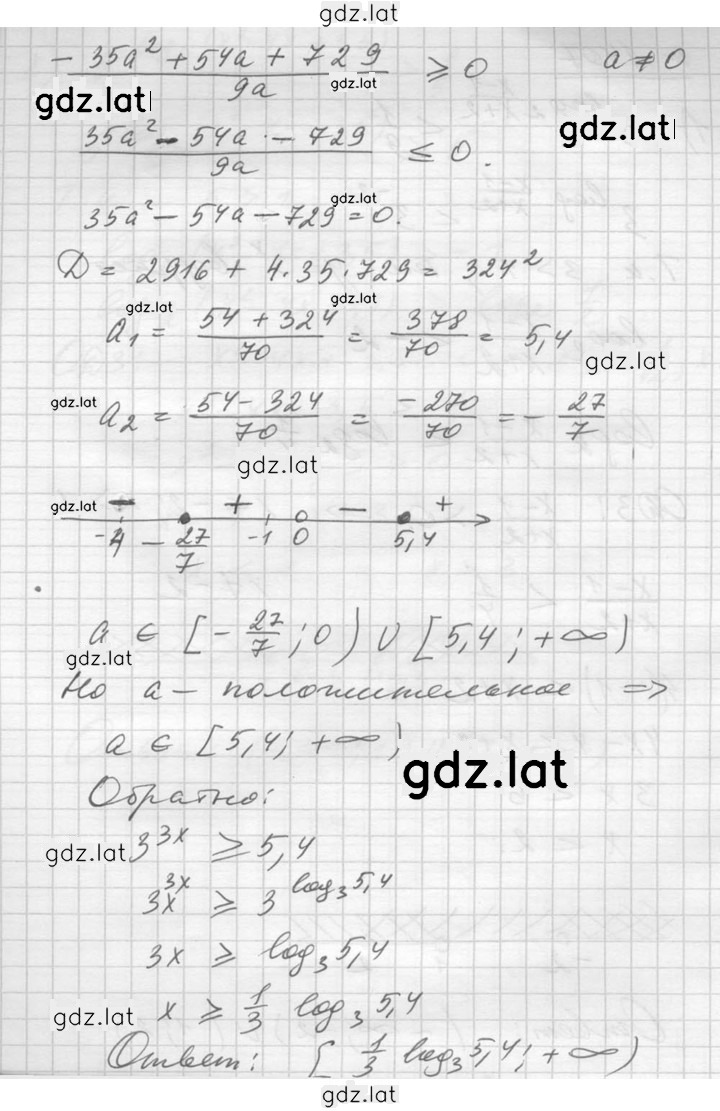 gdz.lat
(- 35a² + 54a + 729) / 9a ≥ 0   a ≠ 0
gdz.lat
gdz.lat
gdz.lat
(35a² - 54a - 729) / 9a ≤ 0.
gdz.lat
35a² - 54a - 729 = 0.
D = 2916 + 4·35·729 = 324²
gdz.lat
gdz.lat
a₁ = (54 + 324) / 70 = 378 / 70 = 5,4
gdz.lat
gdz.lat
a₂ = (54 - 324) / 70 = -270 / 70 = - 27/7
gdz.lat
gdz.lat
- + - +
-4 - 27/7 -1 0 5,4
a ∈ [- 27/7 ; 0) ∪ [5,4 ; +∞)
gdz.lat
Но a - положительное =>
a ∈ [5,4; +∞)
gdz.lat
Обратно:
gdz.lat
3^(3x) ≥ 5,4
3^(3x) ≥ 3^(log₃ 5,4)
3x ≥ log₃ 5,4
gdz.lat
x ≥ 1/3 log₃ 5,4
Ответ: [ 1/3 log₃ 5,4; +∞)
gdz.lat